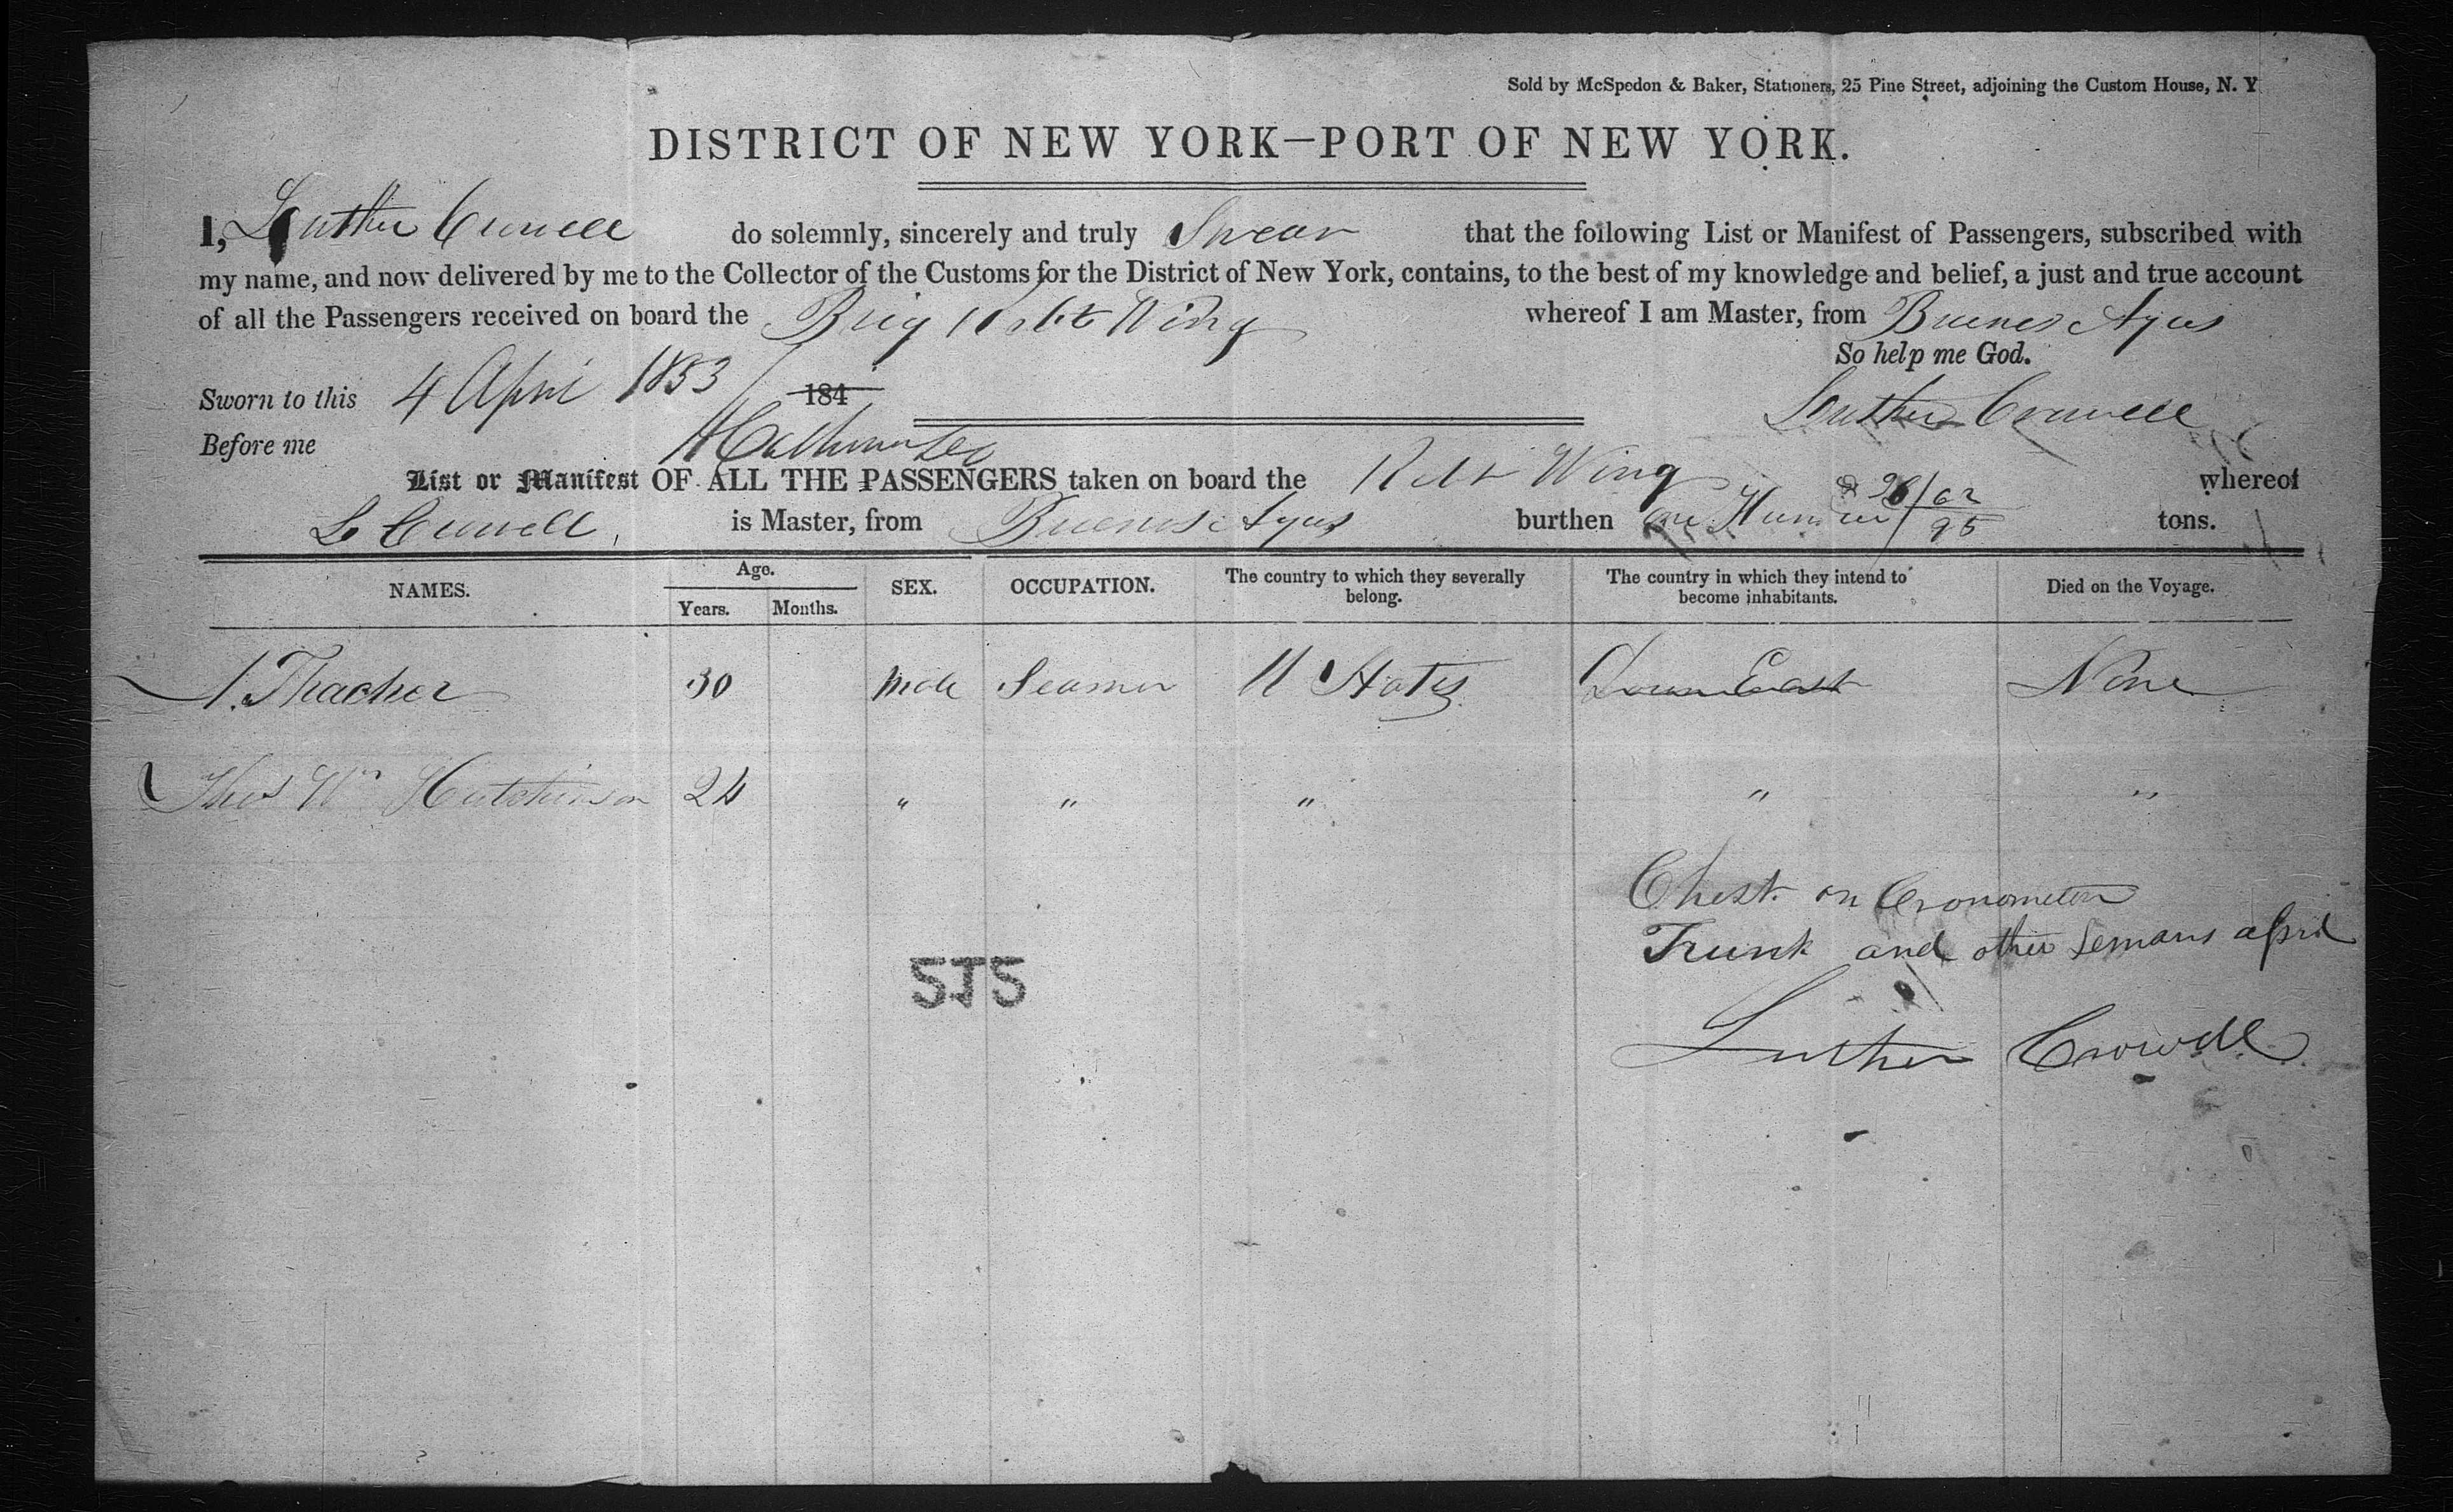 Sold by McSpedon & Baker, Stationers, 25 Pine Street, adjoining the Custom House, N. Y
DISTRICT OF NEW YORK—PORT OF NEW YORK.
I, Luther Crowell do solemnly, sincerely and truly Swear that the following List or Manifest of Passengers, subscribed with
my name, and now delivered by me to the Collector of the Customs for the District of New York, contains, to the best of my knowledge and belief, a just and true account
of all the Passengers received on board the Brig Robt Wing whereof I am Master, from Buenos Ayres
So help me God.
Sworn to this 4 April 1853 184
Luther Crowell
Before me
List or Manifest OF ALL THE PASSENGERS taken on board the Robt Wing whereof
L Crowell is Master, from Buenos Ayres burthen 96/62 95 tons.
NAMES. Age. Years. Months. SEX. OCCUPATION. The country to which they severally belong. The country in which they intend to become inhabitants. Died on the Voyage.
1. Thacher 30 Male Seaman U States Down East None
Thos Wm Hutchinson 24 " " " " "
Chest on Cronometer
Trunk and other
Luther Crowell
575